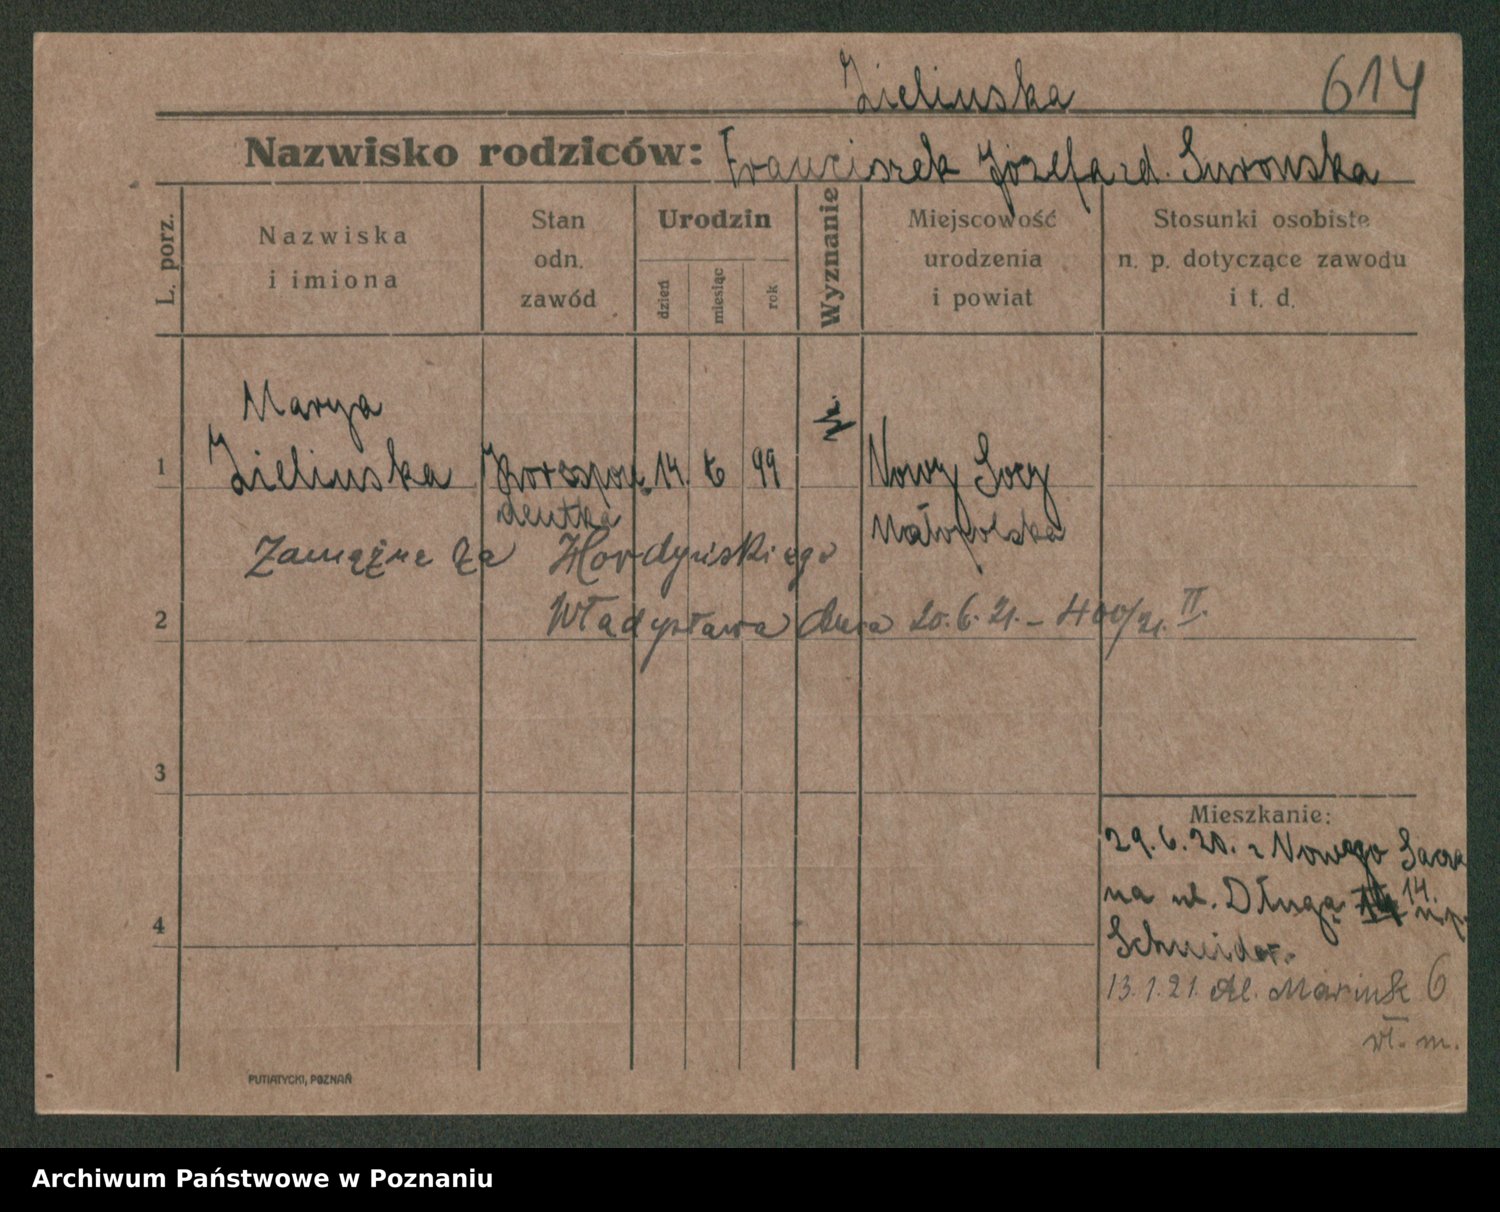 Zielinska
614
Nazwisko rodziców: Franciszek Józefa zd. Surowska
L. porz.
Nazwiska
i imiona
Stan
odn.
zawód
Urodzin
dzień
miesiąc
rok
Wyznanie
Miejscowość
urodzenia
i powiat
Stosunki osobiste
n. p. dotyczące zawodu
i t. d.
Marya
1 Zielinska Korespon 14. 99 Nowy Soncz
dentka Małopolska
Zamężna za Hordyńskiego
2 Władysława dnia 20.6.21. – 400/21. II.
3
Mieszkanie:
29.6.20. z Nowego Sącza
na ul. Długą 14. u.p.
4
Schneider.
13.1.21. Al. Marcink 6
wł. m.
PUTIATYCKI, POZNAŃ
Archiwum Państwowe w Poznaniu